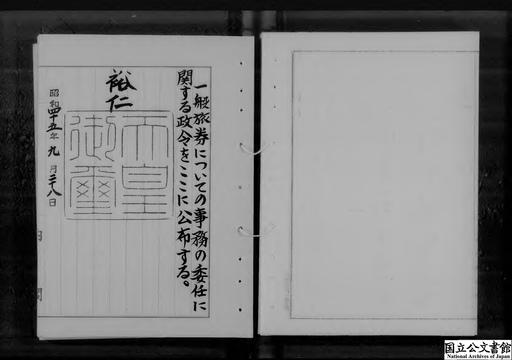 一般旅券についての事務の委任に
関する政令をここに公布する。
裕仁
天皇
御璽
昭和四十五年九月二十八日
国立公文書館
National Archives of Japan